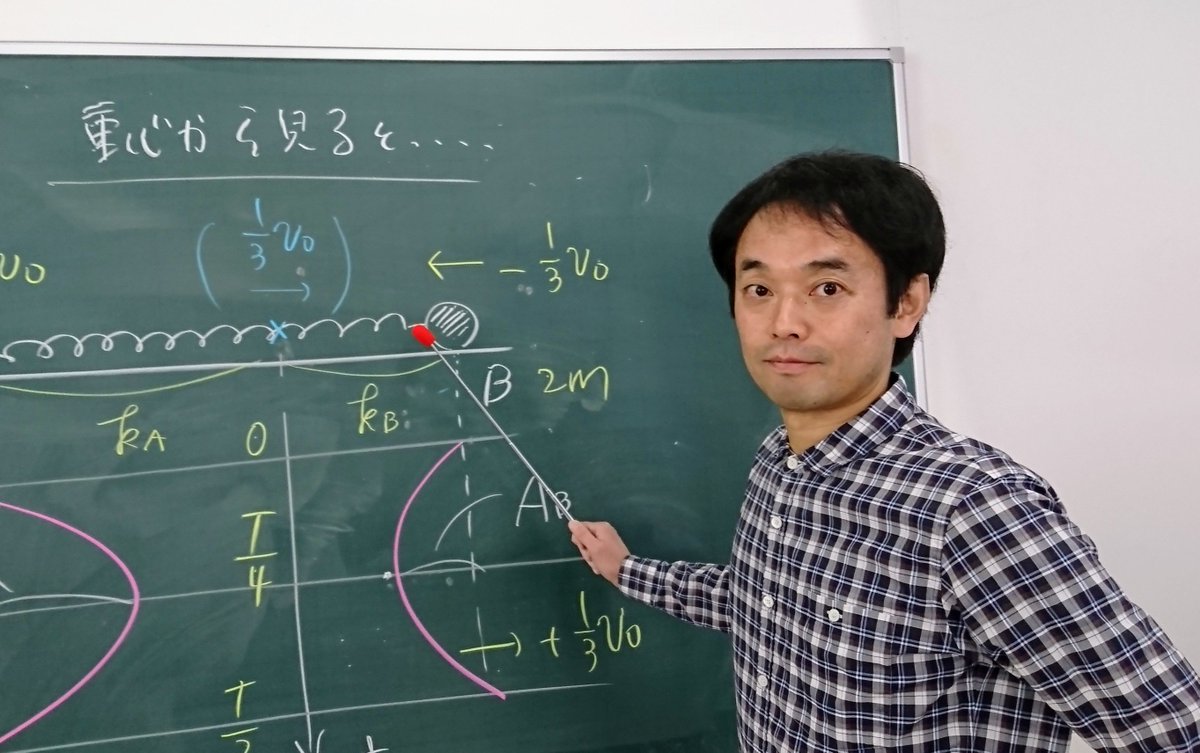 重心から見ると.....
v₀
(1/3 v₀ →)
← -1/3 v₀
B 2m
k_A 0 k_B
A_B
T/4
→ +1/3 v₀
T/2
t